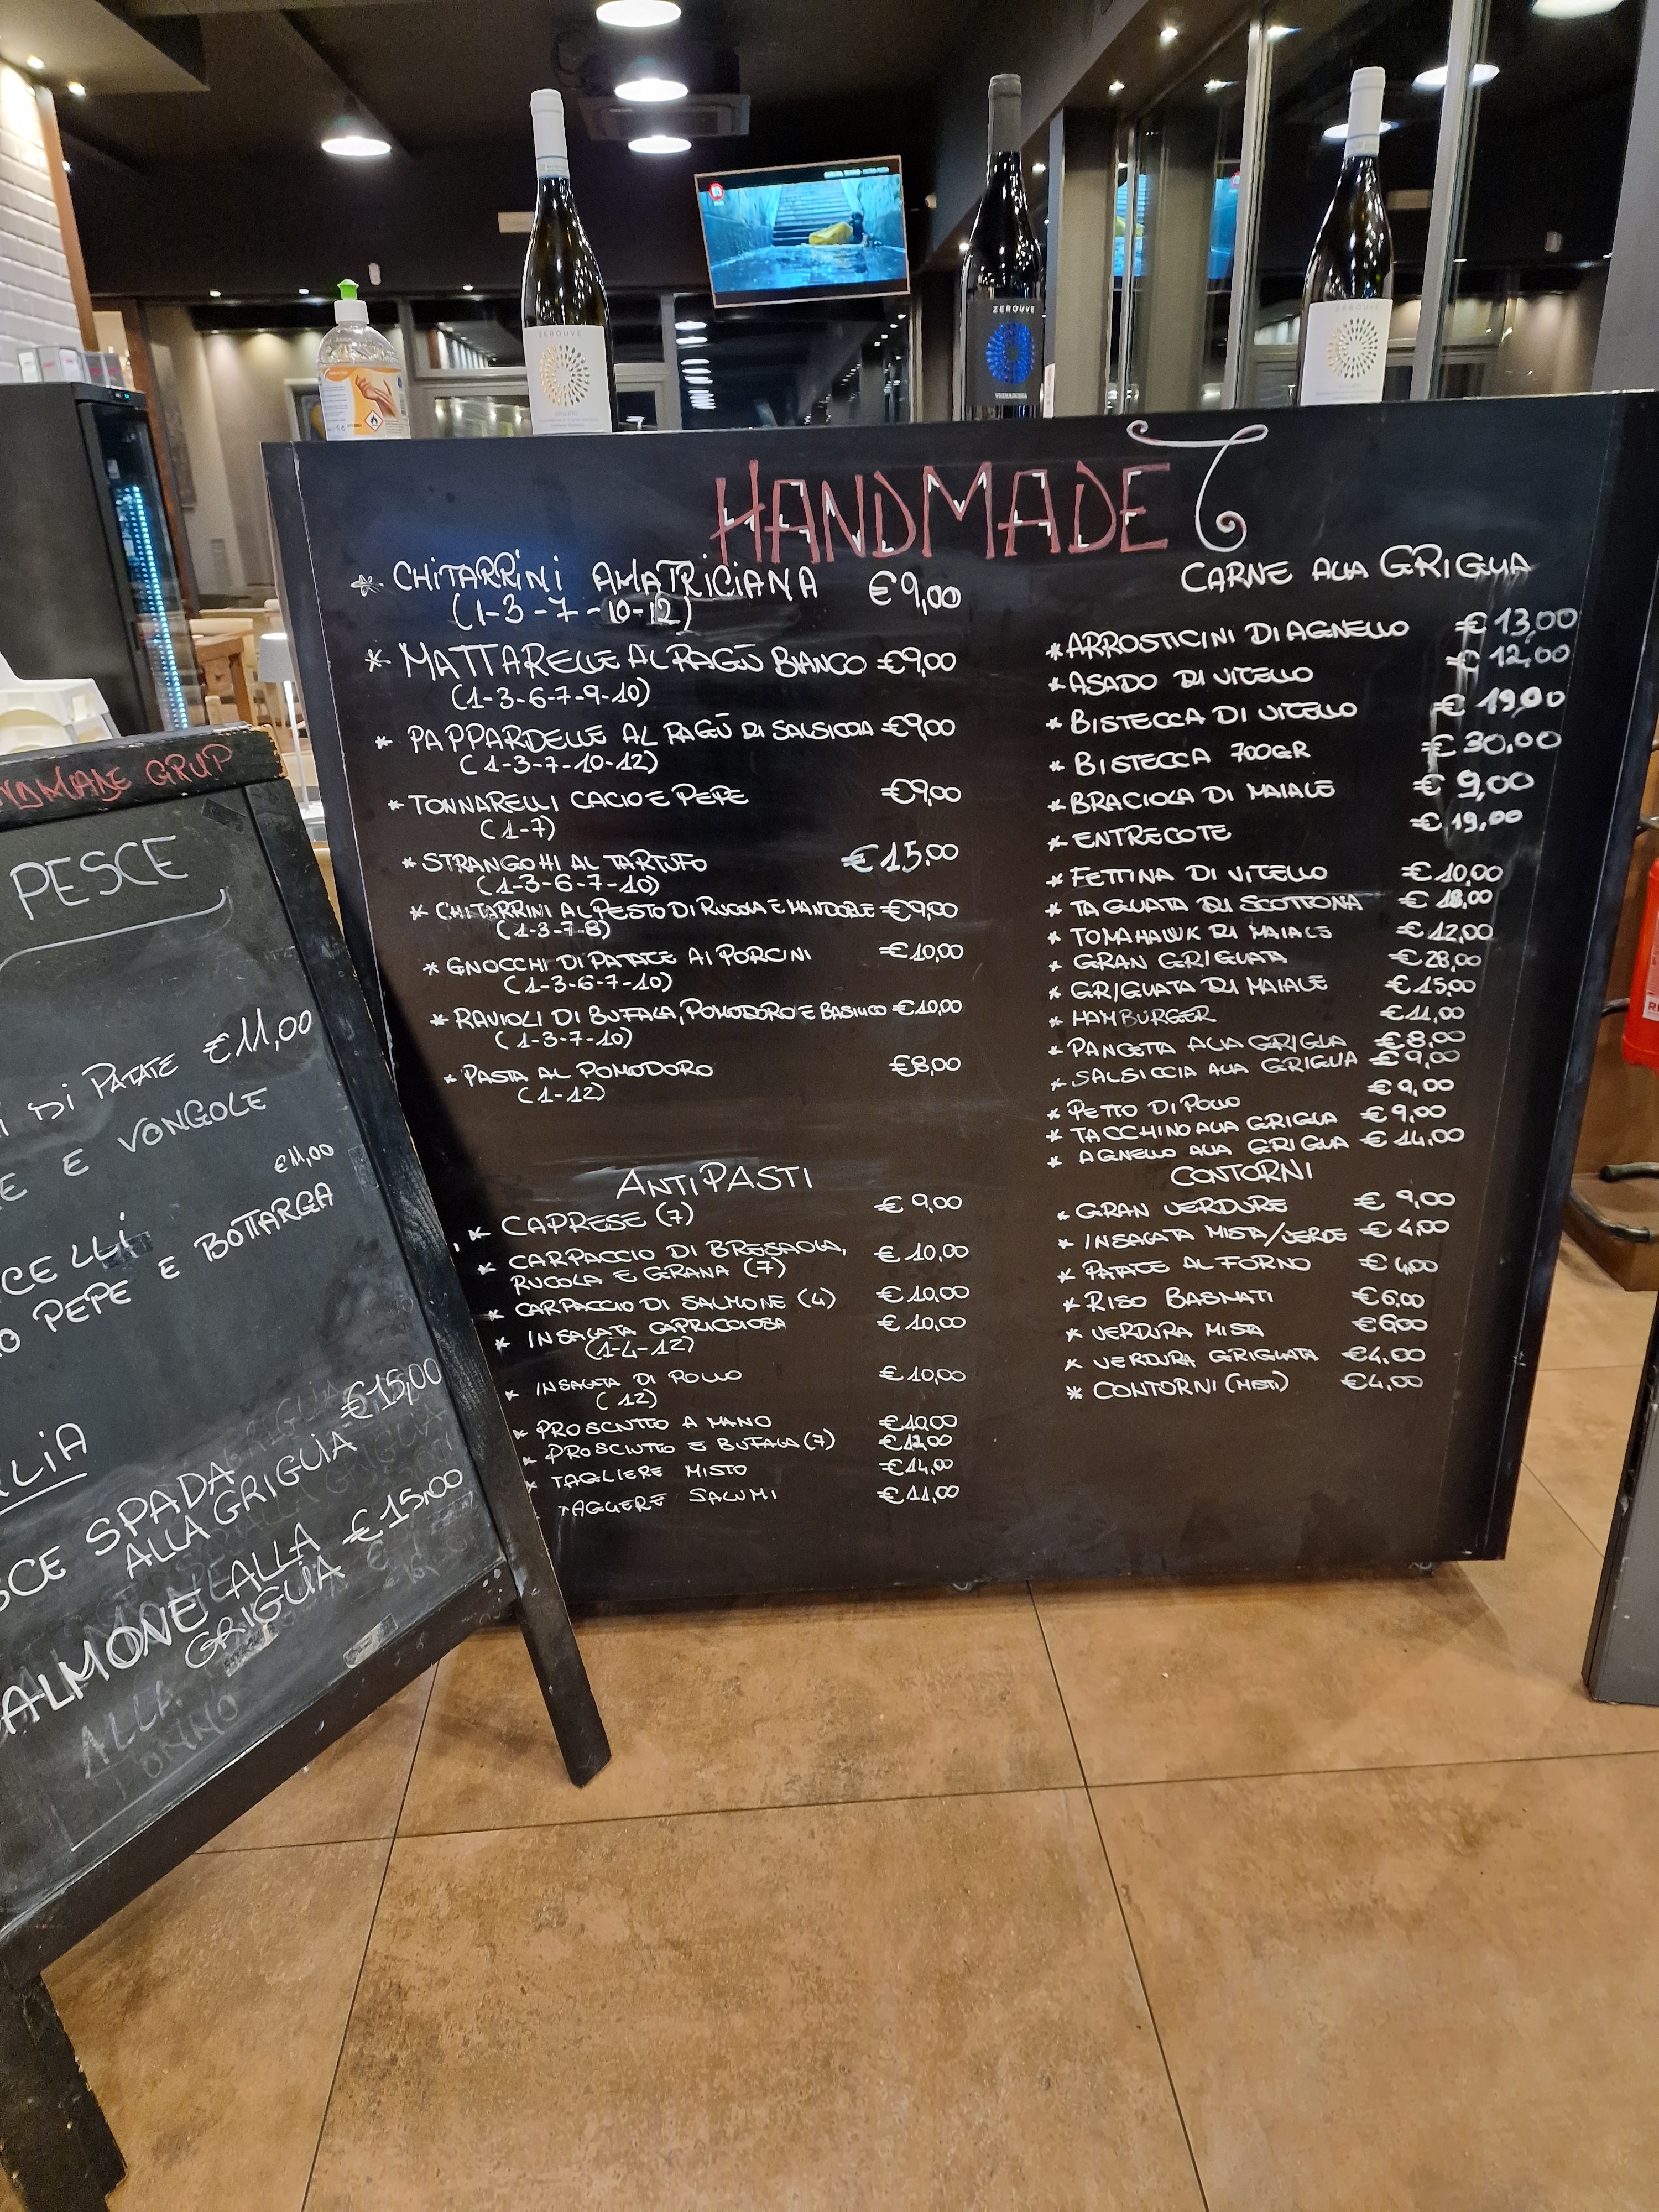 ZEROUVE
ZEROUVE
ZEROUVE
HANDMADE
* CHITARRINI AMATRICIANA €9,00
(1-3-7-10-12)
* MATTARELLE AL RAGÙ BIANCO €9,00
(1-3-6-7-9-10)
* PAPPARDELLE AL RAGÙ DI SALSICCIA €9,00
(1-3-7-10-12)
* TONNARELLI CACIO E PEPE €9,00
(1-7)
* STRANGOHI AL TARTUFO €15,00
(1-3-6-7-10)
* CHITARRINI AL PESTO DI RUCOLA E MANDORLE €9,00
(1-3-7-8)
* GNOCCHI DI PATATE AI PORCINI €10,00
(1-3-6-7-10)
* RAVIOLI DI BUFALA, POMODORO E BASILICO €10,00
(1-3-7-10)
* PASTA AL POMODORO €8,00
(1-12)
ANTIPASTI
* CAPRESE (7) €9,00
* CARPACCIO DI BRESAOLA, €10,00
RUCOLA E GRANA (7)
* CARPACCIO DI SALMONE (4) €10,00
* INSALATA CAPRICCIOSA €10,00
(1-4-12)
* INSALATA DI POLLO €10,00
(12)
* PROSCIUTTO A MANO €10,00
* PROSCIUTTO E BUFALA (7) €12,00
* TAGLIERE MISTO €14,00
TAGLIERE SALUMI €11,00
CARNE ALLA GRIGLIA
* ARROSTICINI DI AGNELLO €13,00
* ASADO DI VITELLO €12,00
* BISTECCA DI VITELLO €19,00
* BISTECCA 700GR €30,00
* BRACIOLA DI MAIALE €9,00
* ENTRECOTE €19,00
* FETTINA DI VITELLO €10,00
* TAGLIATA DI SCOTTONA €18,00
* TOMAHAWK DI MAIALE €12,00
* GRAN GRIGLIATA €28,00
* GRIGLIATA DI MAIALE €15,00
* HAMBURGER €11,00
* PANCETTA ALLA GRIGLIA €8,00
* SALSICCIA ALLA GRIGLIA €9,00
* PETTO DI POLLO €9,00
* TACCHINO ALLA GRIGLIA €9,00
* AGNELLO ALLA GRIGLIA €14,00
CONTORNI
* GRAN VERDURE €9,00
* INSALATA MISTA/VERDE €4,00
* PATATE AL FORNO €4,00
* RISO BASMATI €6,00
* VERDURA MISTA €6,00
* VERDURA GRIGLIATA €4,00
* CONTORNI (MISTI) €4,00
NDMADE GRUP
PESCE
I DI PATATE €11,00
E E VONGOLE
€11,00
CELLI
O PEPE E BOTTARGA
€15,00
GLIA
SCE SPADA
ALLA GRIGLIA
ALMONE ALLA €15,00
GRIGLIA
ALLA
TONNO